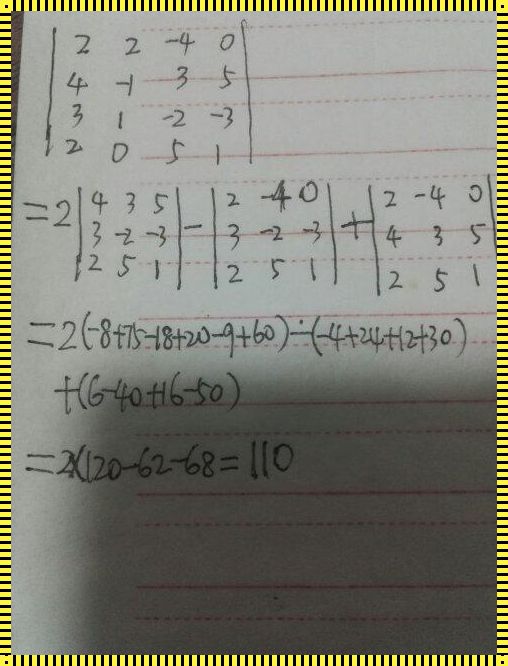 | 2 2 -4 0 |
| 4 -1 3 5 |
| 3 1 -2 -3 |
| 2 0 5 1 |
= 2 | 4 3 5 | - | 2 -4 0 | + | 2 -4 0 |
| 3 -2 -3 | | 3 -2 -3 | | 4 3 5 |
| 2 5 1 | | 2 5 1 | | 2 5 1 |
=2(-8+75-18+20-9+60)-(-4+24+12+30)
+(6-40+16-50)
=2×120-62-68=110